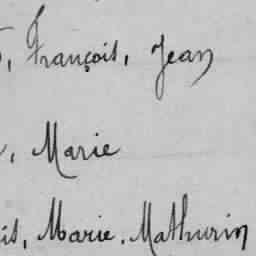 , François, Jean
, Marie
is, Marie, Mathurin